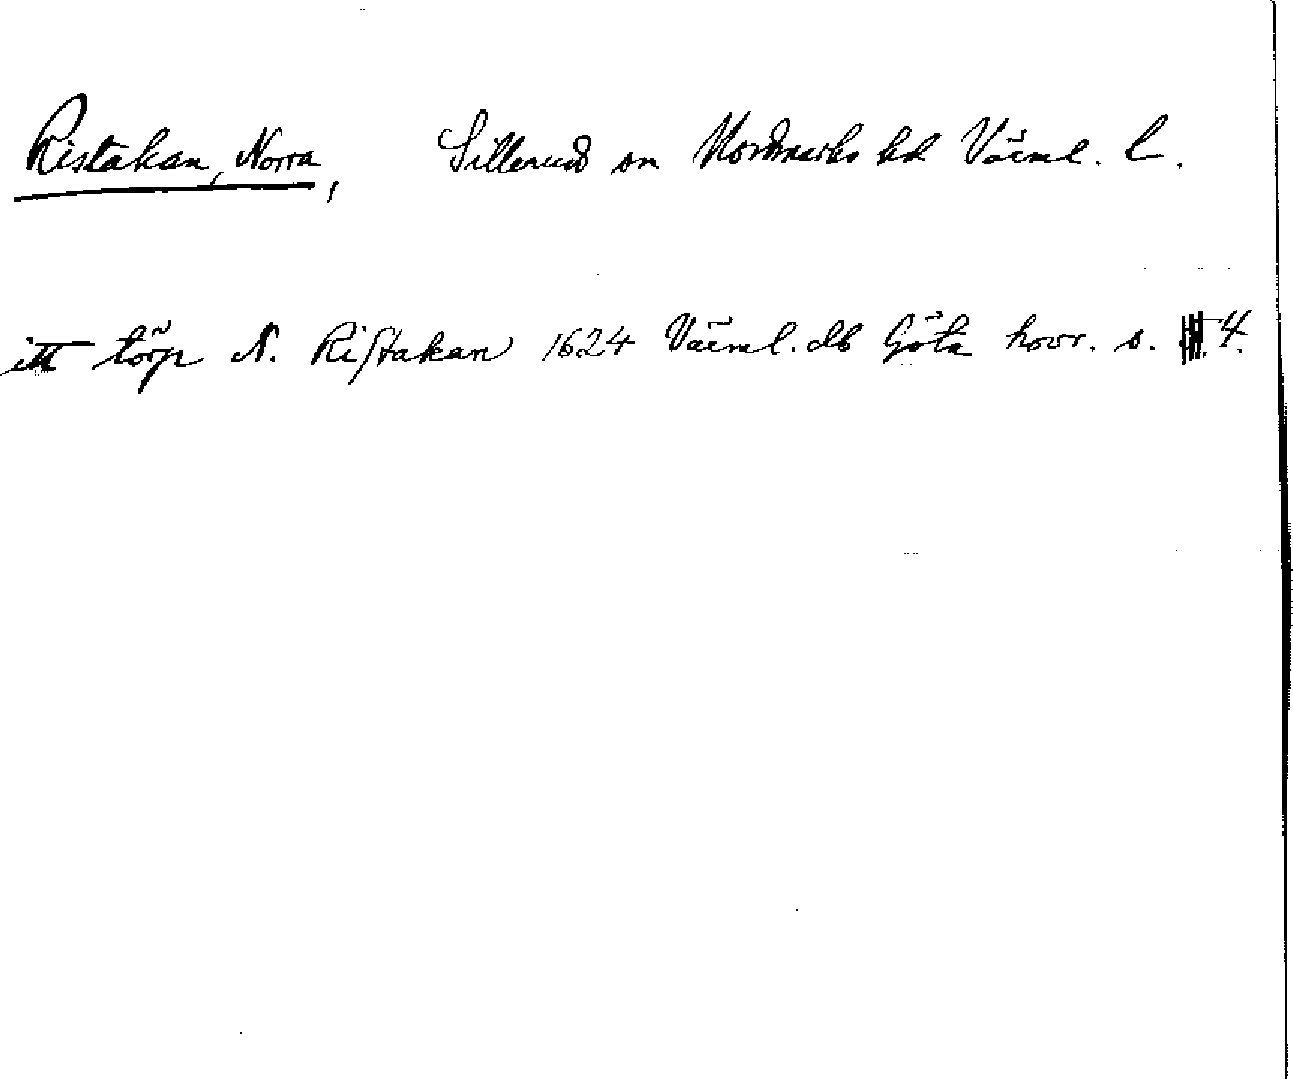 Ristakan, Norra, Sillerud sn Nordmarks hd Värml. l.
itt törp N. Ristakan 1624 Värml. db Göta hovr. s. 4.